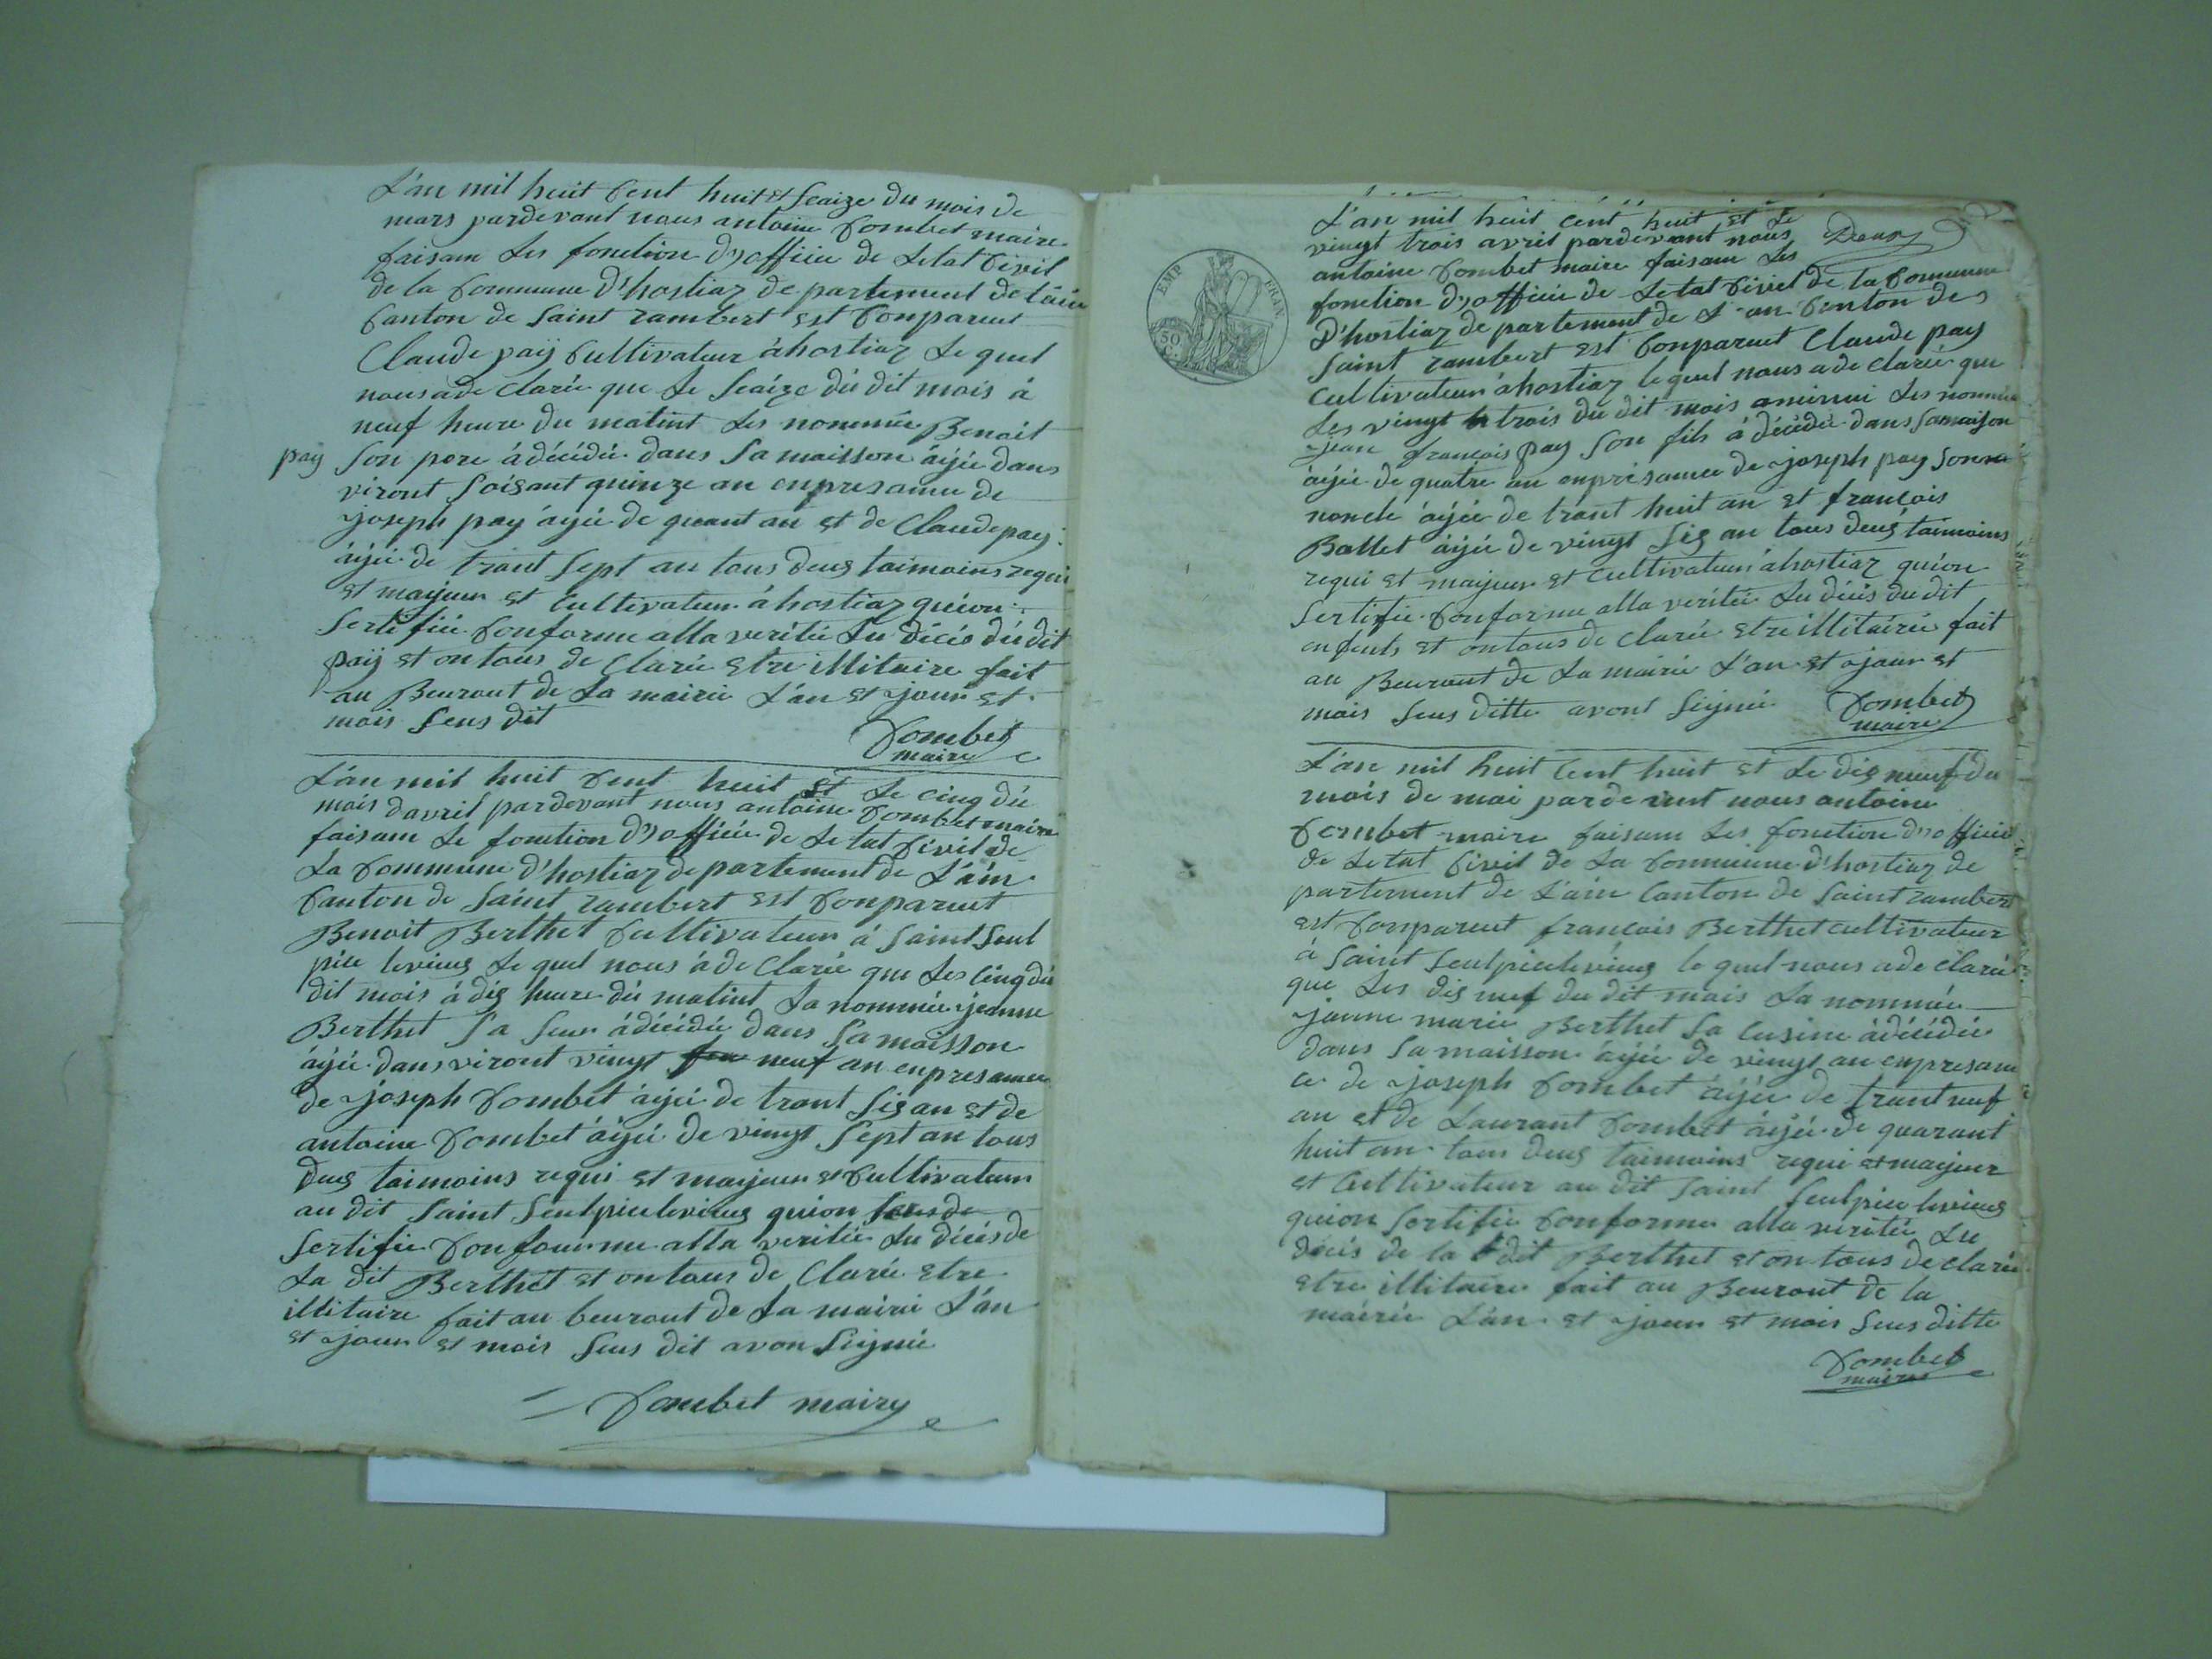 L'an mil huit Cent huit et seaize du mois de
mars pardevant nous antoine Combet maire
faisam les fonction d'officie de letat Civil
de la Commune d'hostiaz de partement de l'ain
Canton de Saint rambert est Conpareut
Claude paÿ Cultivateur à hostiaz le quel
nous a de clarée que le seaize du dit mois à
neuf heure du matint les nommée Benait
pay son pere à décédé dans sa maisson âjée dans
viront soisant quinze an enpresance de
joseph pay âjée de quant an et de Claude pay
âjée de trant sept an tous deus taimoins requi
et majeur et Cultivateur à hostiaz quion
sertifiée Conforme alla veritée du décés du dit
paÿ et on tous de clarée etre illitaire fait
au Beuraut de la mairie l'an et jour et
mois sus dit
Combet
maire
L'an mil huit Cent huit et le cinq du
mois davril pardevant nous antoine Combet maire
faisam le fonction d'officie de letat Civil de
la Commune d'hostiaz de partement de l'ain
Canton de Saint rambert est Conpareut
Benoit Berthet Cultivateur à Saint seul
pice levieus le quel nous à de clarée que les cinq du
dit mois à dis heure du matint la nommée jeanne
Berthet sa seur à décédée dans sa maisson
âjée dans viront vingt neuf an enpresance
de joseph Combet âjée de trant sis an et de
antoine Combet âjée de vingt sept an tous
deus taimoins requi et majeur et Cultivateur
au dit Saint seulpice levieus quion
sertifiée Conforme alla veritée du décés de
la dit Berthet et on tous de clarée etre
illitaire fait au beuraut de la mairie l'an
et jour et mois sus dit avon signiée
Combet maire
EMP. FRAN.
50
L'an mil huit cent huit et le
vingt trois avril pardevant nous Deus
antoine Combet maire faisam les
fonction d'officie de letat Civil de la Commune
d'hostiaz de partement de l'ain Canton de
Saint rambert est Conparut Claude pay
Cultivateur à hostiaz le quel nous a de clarée que
les vingt trois du dit mois aminui les nommée
jean francois pay son fils à décédée dans sa maison
âjée de quatre an enprésance de joseph pay son
noncle âjée de trant huit an et francois
Ballet âjée de vingt sis an tous deus taimoins
requi et majeur et Cultivateur à hostiaz quion
sertifiée Conforme alla veritée du décés du dit
enfents et on tous de clarée etre illitairée fait
au Beuraut de la mairie l'an et jour et
mois sus ditte avont signiée Combet
maire
L'an mil huit Cent huit et le dis neuf du
mois de mai pardevent nous antoine
Combet maire faisam les fonction d'officie
de letat Civil de la Commune d'hostiaz de
partement de l'ain Canton de Saint rambert
est Conpareut francois Berthet cultivateur
à Saint seulpice levieus le quel nous a de clarée
que les dis neuf du dit mois la nommée
janne marie Berthet sa cusine à décédée
dans sa maisson âjée de vingt an enpresan
ce de joseph Combet âjée de trant neuf
an et de Laurant Combet âjée de quarant
huit an tous deus taimoins requi et majeur
et Cultivateur au dit Saint seulpice levieus
quion sertifiée Conforme alla veritée du
decés de la dit Berthet et on tous declarée
etre illitaire fait au Beuraut de la
mairie l'an et jour et mois sus ditte
Combet
maire